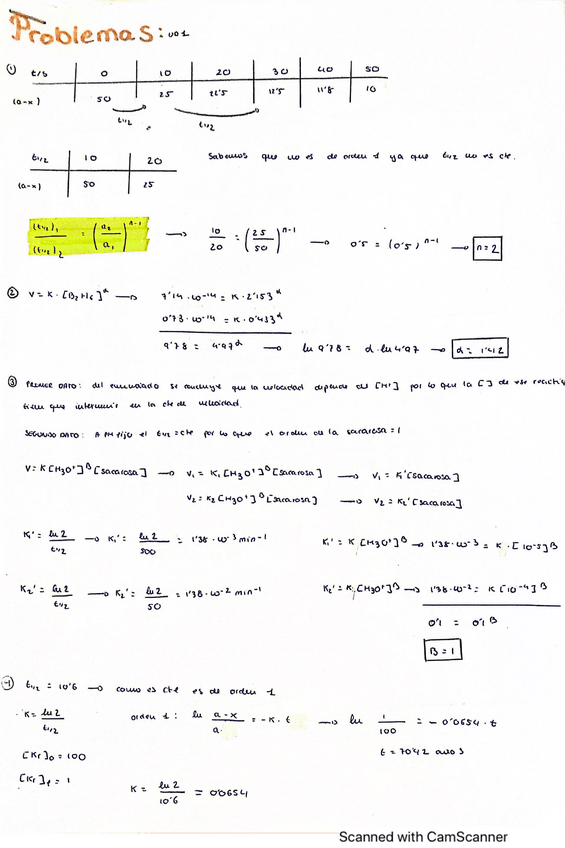 Problemas: U01
① t/s 0 10 20 30 40 50
(a-x) 50 25 22'5 12'5 11'8 10
t1/2 t1/2
t1/2 10 20 Sabemos que no es de orden 1 ya que t1/2 no es cte.
(a-x) 50 25
(t1/2)1 / (t1/2)2 = (a2/a1)^n-1 → 10/20 = (25/50)^n-1 → 0'5 = (0'5)^n-1 → n=2
② V = K · [B2H6]^α → 7'14 · 10^-14 = K · 2'153^α
0'73 · 10^-14 = K · 0'433^α
9'78 = 4'97^α → ln 9'78 = α · ln 4'97 → α = 1'42
③ PRIMER DATO: del enunciado se concluye que la velocidad depende del [H+] por lo que la [ ] de ese reactivo
tiene que intervenir en la cte de velocidad.
SEGUNDO DATO: A PH fijo el t1/2 = cte por lo que el orden de la sacarosa = 1
V = K [H3O+]^B [sacarosa] → V1 = K1 [H3O+]^B [sacarosa] → V1 = K1' [sacarosa]
V2 = K2 [H3O+]^B [sacarosa] → V2 = K2' [sacarosa]
K1' = ln 2 / t1/2 → K1' = ln 2 / 500 = 1'38 · 10^-3 min^-1 K1' = K [H3O+]^B → 1'38 · 10^-3 = K · [10^-5]^B
K2' = ln 2 / t1/2 → K2' = ln 2 / 50 = 1'38 · 10^-2 min^-1 K2' = K [H3O+]^B → 1'38 · 10^-2 = K [10^-4]^B
0'1 = 0'1^B
B = 1
④ t1/2 = 10'6 → como es cte es de orden 1
· K = ln 2 / t1/2 orden 1: ln a-x / a = -K · t → ln 1 / 100 = -0'0654 · t
[Kr]0 = 100 t = 70'42 años
[Kr]t = 1 K = ln 2 / 10'6 = 0'0654
Scanned with CamScanner